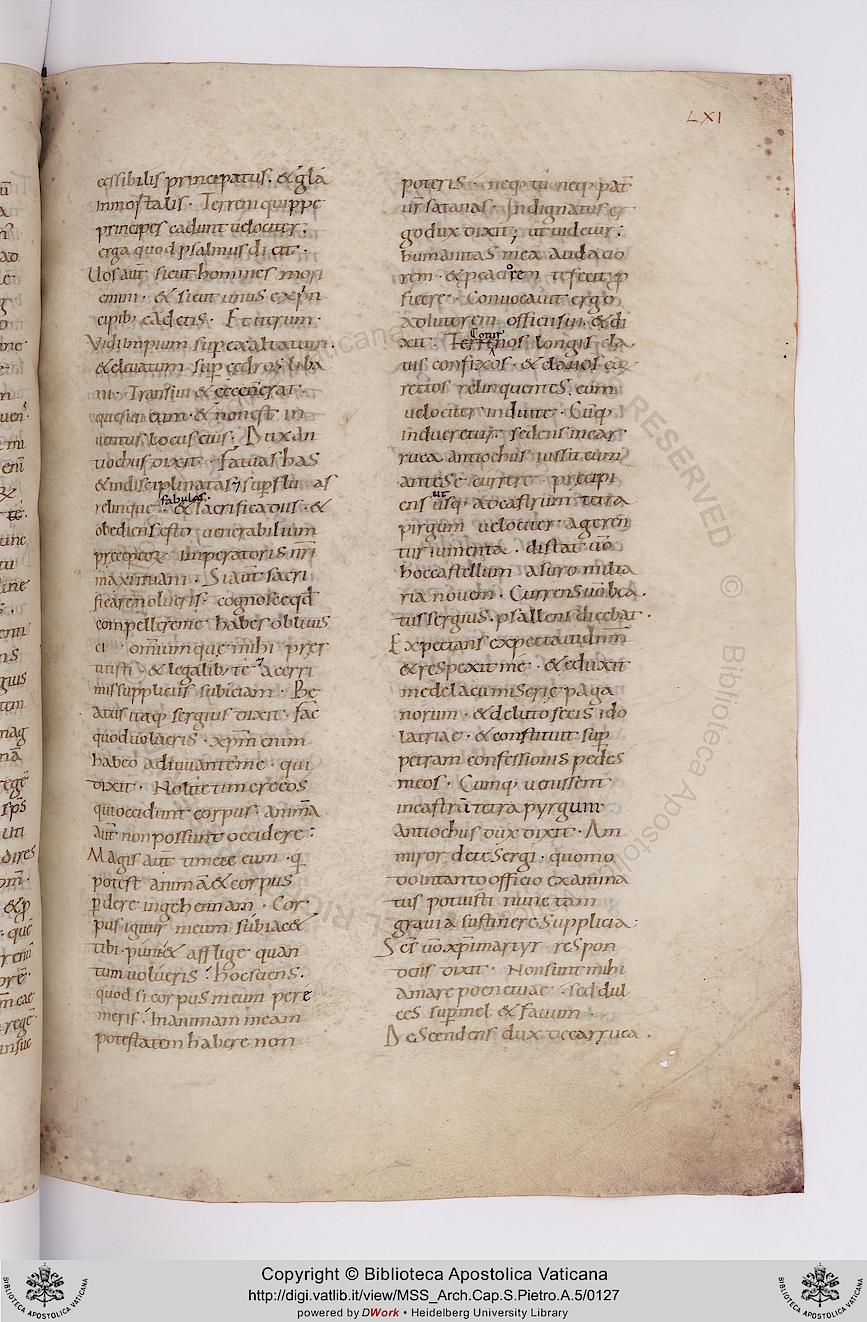 LXI
cessibilis principatus. & gła
inmortalis. Terreni quippe
principes cadunt uelociter.
erga quod psalmus dicit.
Uos aut̄ sicut homines mori
emini. & sicut unus ex prin
cipib; cadetis. Et iterum.
Vidi impium sup exaltatum.
& eleuatum sup cedros liba
ni. Transiui & ecce n̄ erat.
quesiui eum. & non est in
uentus locus eius. Dux an
tiochus dixit. Fatuas has
& indisciplinatas 7 supfluas
fabulas.
relinque. & sacrifica diis. &
obediens esto uenerabilium
preceptor imperatoris nr̄i
maximiani. Si aut̄ sacri
ficare nolueris. cognosce qd̄
compellere me habes obliuis
ci omnium que mihi pres
titisti. & legalib; te acerri
mis suppliciis subiciam. Be
atus itaq; sergius dixit. fac
quod uolueris. xp̄m enim
habeo adiuuantem me. qui
dixit. Nolite timere eos
qui occidunt corpus. animā
aut̄ non possunt occidere.
Magis aut̄ timete eum. q̄
potest animā & corpus
p̄dere in gehennam. Cor
pus igitur meum subiac&
tibi. puni & afflige quan
tum uolueris. hoc sciens.
quod si corpus meum pere
meris. In animam meam
potestatem habere non
poteris. neq; tu neq; pat̄
ur satanas. Indignatus er
go dux dixit; ut uidetur.
humanitas mea audacio
rem. & peaciorem te fecit p̄
ficere. Conuocauit ergo
adiutorem officii sui. & di
xit. Terrenos longis cla
uis confixos. & clauos ea
rectos relinquentes. eum
uelociter induite. Cūq;
indueretur sedens in car
ruca antiochus iussit eum
ante se currere. precipi
ut
ens usq; ad castrum tetra
pirgum uelociter ageren
tur iumenta. distat ūo
hoc castellum a suro milia
ria nouem. Currens ūo bea
tus sergius. psallens dicebat.
Expectans expectaui dnm̄
& respexit me. & eduxit
me de lacu miserie paga
norum. & de luto fecis ido
latriae. & constituit sup
petram confessionis pedes
meos. Cumq; uenissent
in castrū tetra pyrgum
antiochus dux dixit. Am
miror de te Sergi. quomo
do in tanto officio examina
tus potuisti nunc tam
grauia sustinere supplicia.
Scs ūo xp̄i martyr respon
dens dixit. Non sunt mihi
amare poene tuae. sed dul
ces sup mel & fauum.
Descendens dux de carruca.
Copyright © Biblioteca Apostolica Vaticana
http://digi.vatlib.it/view/MSS_Arch.Cap.S.Pietro.A.5/0127
powered by DWork • Heidelberg University Library